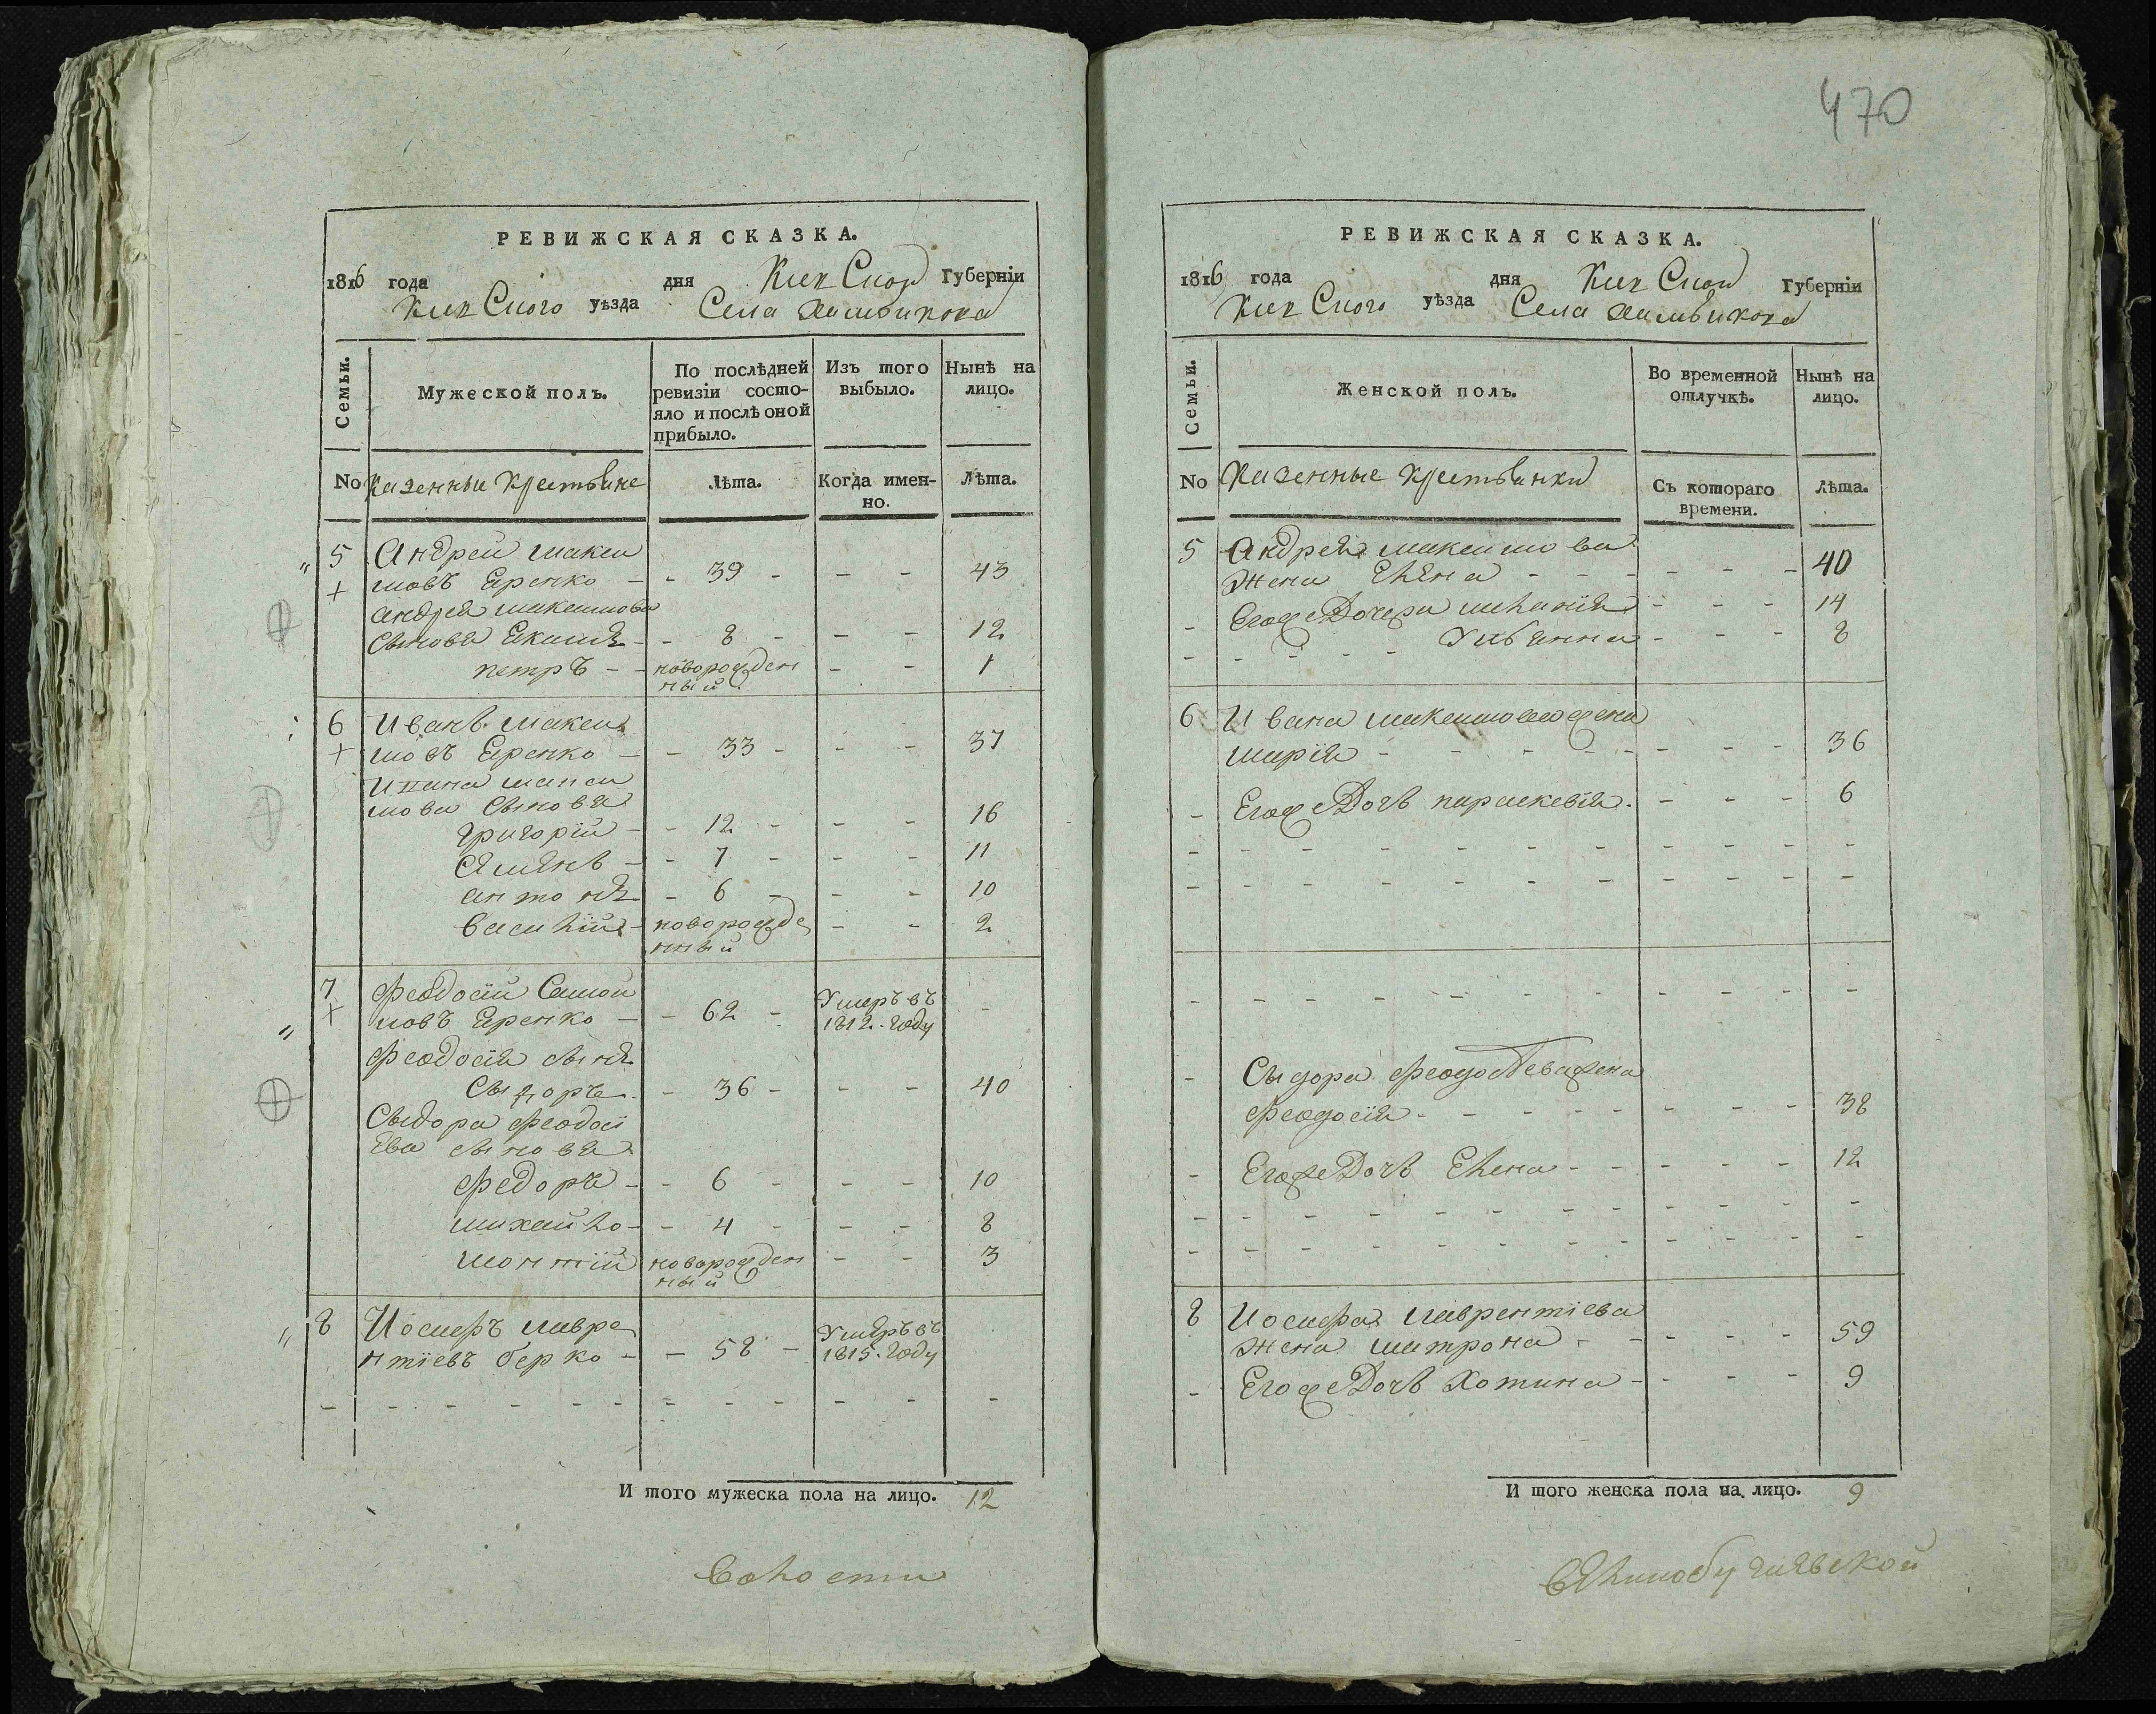 470
РЕВИЖСКАЯ СКАЗКА.
1816 года дня Киевской Губерніи
Киевского уѣзда Села
Семьи.
Мужеской полъ.
По послѣдней ревизіи состояло и послѣ оной прибыло.
Изъ того выбыло.
Нынѣ на лицо.
No Казенные крестьяне
Лѣта.
Когда именно.
Лѣта.
5 Андрей Макси
мовъ Еренко - - 39 - - - 43
Андрея Максимова
Сыновя Екимъ - - 8 - - - 12
петръ - - новорожден - - 1
ный
6 Иванъ Макси
мовъ Еренко - - 33 - - - 37
Ивана Макси
мова Сыновя
григорій - - 12 - - - 16
Сямѣнъ - - 7 - - - 11
антонъ - 6 - - - 10
василій - новорожде - - 2
нный
7 Феодосій Самой
ловъ Еренко - - 62 - Умеръ въ -
1812. году
Феодосія сынъ
Сыдоръ - 36 - - - 40
Сыдора Феодосі
Ева сыновя
Федоръ - - 6 - - - 10
михайло - - 4 - - - 8
монтій новорожден - - 3
ный
8 Иосифъ лавре
нтіевъ берко - - 58 - Умѣръ въ
1815. году
- - - - - - - - - - - - -
И того мужеска пола на лицо. 12
Волости
РЕВИЖСКАЯ СКАЗКА.
1816 года дня Киевской Губерніи
Киевского уѣзда Села
Семьи.
Женской полъ.
Во временной отлучкѣ.
Нынѣ на лицо.
No Казенные крестьянки
Съ котораго времени.
Лѣта.
5 Андрея максимова
Жена Елена - - - - - - 40
- Егоже Дочери меланія - - - 14
- - - - - Улияанна - - - 8
6 Ивана максимоважена
марія - - - - - - - - 36
- Егоже Дочь параскевія - - - 6
- - - - - - - - - - - -
- - - - - - - - - - - -
- - - - - - - - - - - -
- Сыдора Феодосіеважена
Феодосія - - - - - - - - 38
- Егоже Дочь Елена - - - - - 12
- - - - - - - - - - - -
- - - - - - - - - - - -
8 Иосифа лаврентіева
жена матрона - - - - - 59
- Егоже Дочь Хотина - - - - 9
И того женска пола на лицо. 9